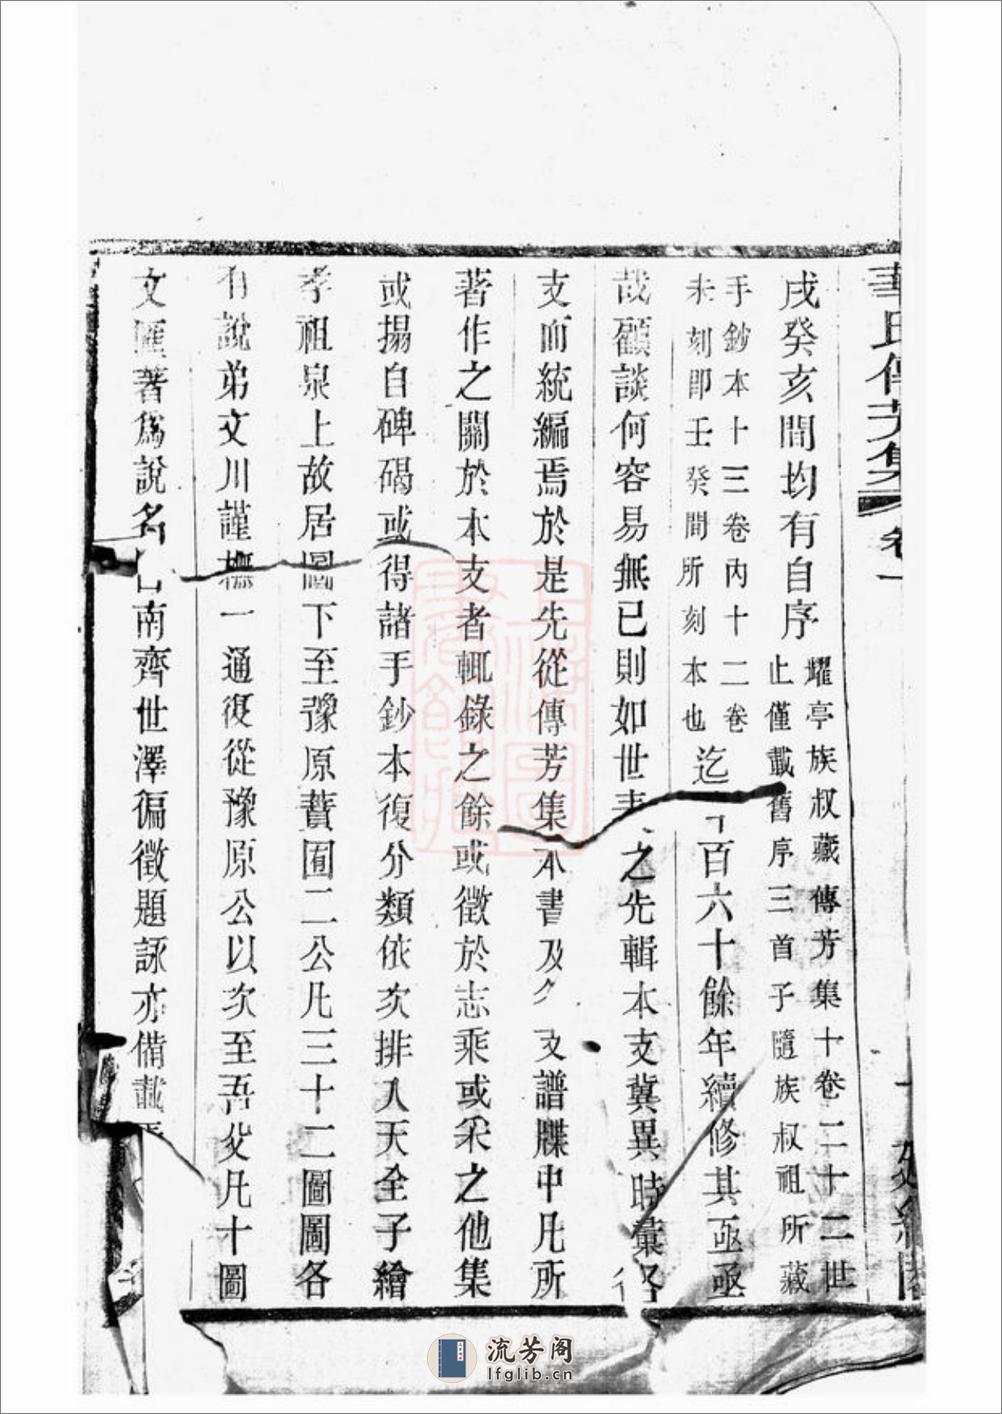 華氏傳芳集 卷一
戌癸亥間均有自序耀亭族叔藏傳芳集十卷二十二世止僅載舊序三首子隨族叔祖所藏
手鈔本十三卷內十二卷未刻即壬癸間所刻本也迄百六十餘年續修其亟亟
哉顧談何容易無已則如世表之先輯本支冀異時彙各
支而統編焉於是先從傳芳集本書及支譜牒中凡所
著作之關於本支者輒錄之餘或徵於志乘或采之他集
或揚自碑碣或得諸手鈔本復分類依次排入天全子繪
孝祖泉上故居圖下至豫原蕡囿二公凡三十二圖圖各
有說弟文川謹橅一通復從豫原公以次至吾父凡十圖
文匯著爲說名曰南齊世澤徧徵題詠亦備載
流芳阁
lfglib.cn